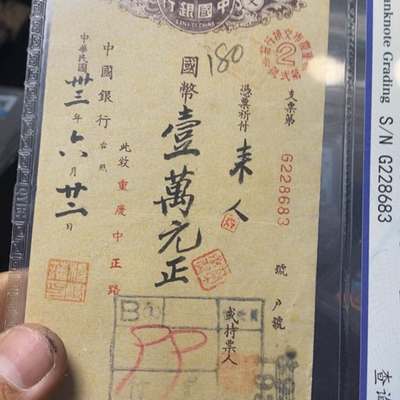 中國銀行
180
2
支票第 G228683 號 戶號
憑票祈付 來人 或持票人
國幣壹萬元正
此致 重慶中正路
中國銀行 台照
中華民國卅三年六月廿二日
B
PP
Banknote Grading
S/N G228683
查